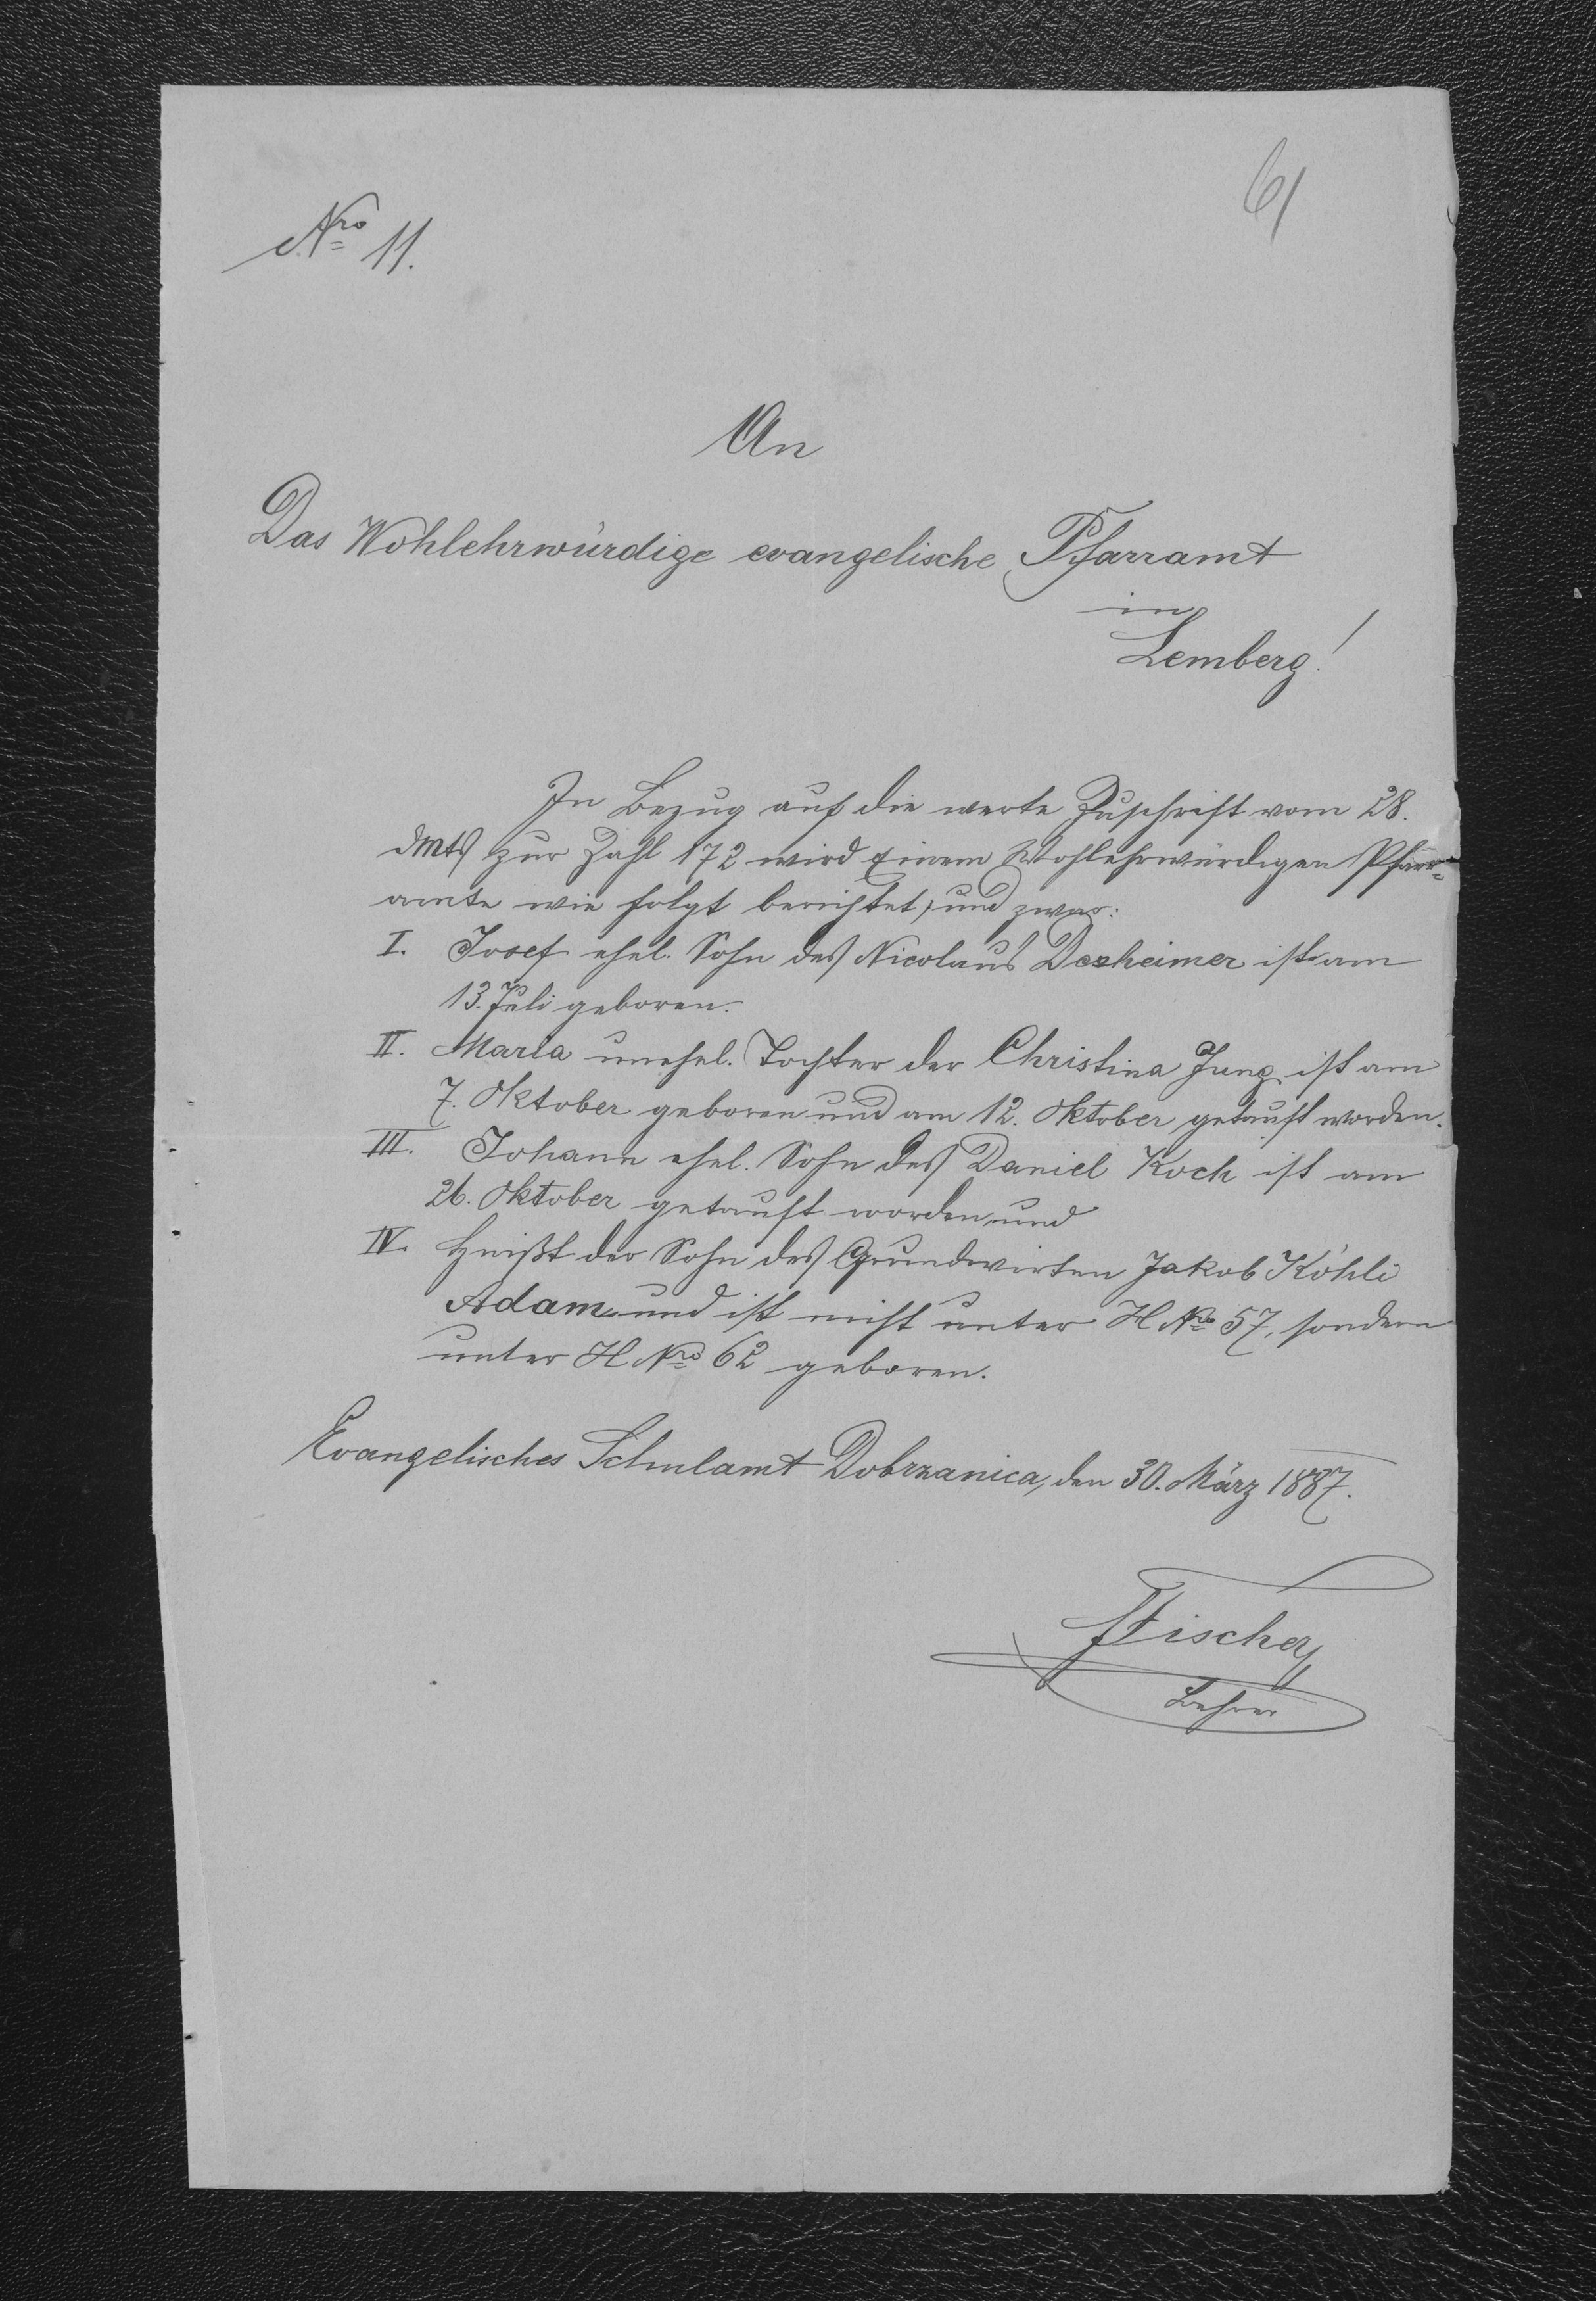 61
Nro 11.
An
Das Wohlehrwürdige evangelische Pfarramt
in
Lemberg!
In Bezug auf die werte Zuschrift vom 28.
dMts zur Zahl 172 wird Einem Wohlehrwürdigen Pfarr-
amte wie folgt berichtet, und zwar:
I. Josef ehel. Sohn des Nicolaus Dexheimer ist am
13. Juli geboren.
II. Maria unehel. Tochter der Christina Jung ist am
7. Oktober geboren und am 12. Oktober getauft worden.
III. Johann ehel. Sohn des Daniel Koch ist am
26. Oktober getauft worden und
IV. Heißt der Sohn des Grundwirten Jakob Köhli
Adam und ist nicht unter H Nro 57, sondern
unter H Nro 62 geboren.
Evangelisches Schulamt Dobrzanica, den 30. März 1887.
Fischer
Lehrer